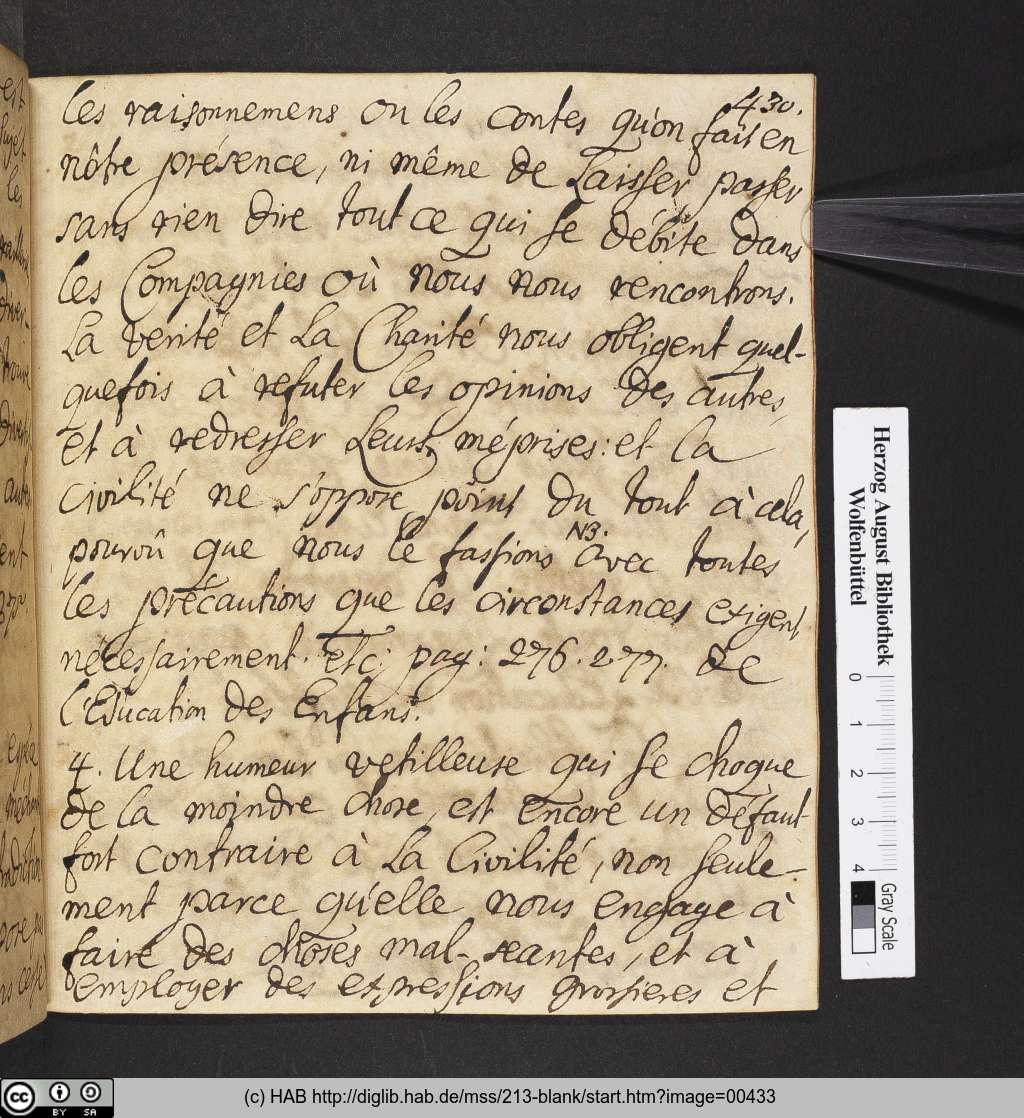 430.
les raisonnemens ou les contes qu'on fait en
nôtre présence, ni même de laisser passer
sans rien dire tout ce qui se débite dans
les Compagnies où nous nous rencontrons.
La verité et la Charité nous obligent quel-
quefois à refuter les opinions des autres,
et à redresser Leurs méprises: et la
Civilité ne s'oppose point du tout à cela,
pourvû que nous le fassions avec toutes
NB.
les précautions que les circonstances exigent
nécessairement. etc: pag: 276. 277. de
l'Education des Enfans.
4. Une humeur vetilleuse qui se choque
de la moindre chose, est encore un defaut
fort contraire à la Civilité, non seule-
ment parce qu'elle nous engage à
faire des choses mal-seantes, et à
employer des expressions grossieres et
Herzog August Bibliothek
Wolfenbüttel
0 1 2 3 4
Gray Scale
cc BY SA
(c) HAB http://diglib.hab.de/mss/213-blank/start.htm?image=00433